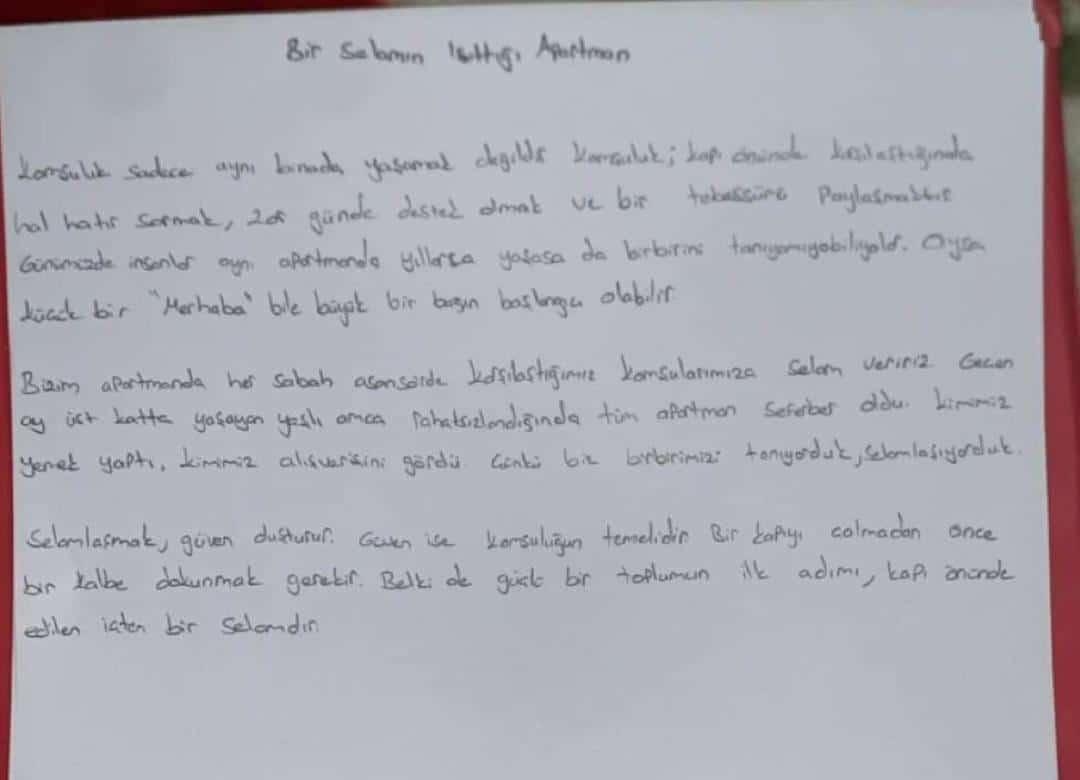 Bir Selamın Isıttığı Apartman
Komşuluk sadece aynı binada yaşamak değildir Komşuluk; kapı önünde karşılaştığında
hal hatır sormak, zor günde destek olmak ve bir tebessümü Paylaşmaktır
Günümüzde insanlar aynı apartmanda yıllarca yaşasa da birbirini tanıyamayabiliyor. Oysa
küçük bir "Merhaba" bile büyük bir bağın başlangıcı olabilir
Bizim apartmanda her sabah asansörde karşılaştığımız komşularımıza selam veririz Geçen
ay üst katta yaşayan yaşlı amca rahatsızlandığında tüm apartman seferber oldu. Kimimiz
yemek yaptı, kimimiz alışverişini gördü Çünkü biz birbirimizi tanıyorduk, selamlaşıyorduk.
Selamlaşmak, güven oluşturur. Güven ise komşuluğun temelidir Bir kapıyı çalmadan önce
bir kalbe dokunmak gerekir. Belki de güçlü bir toplumun ilk adımı, kapı önünde
edilen içten bir Selamdır